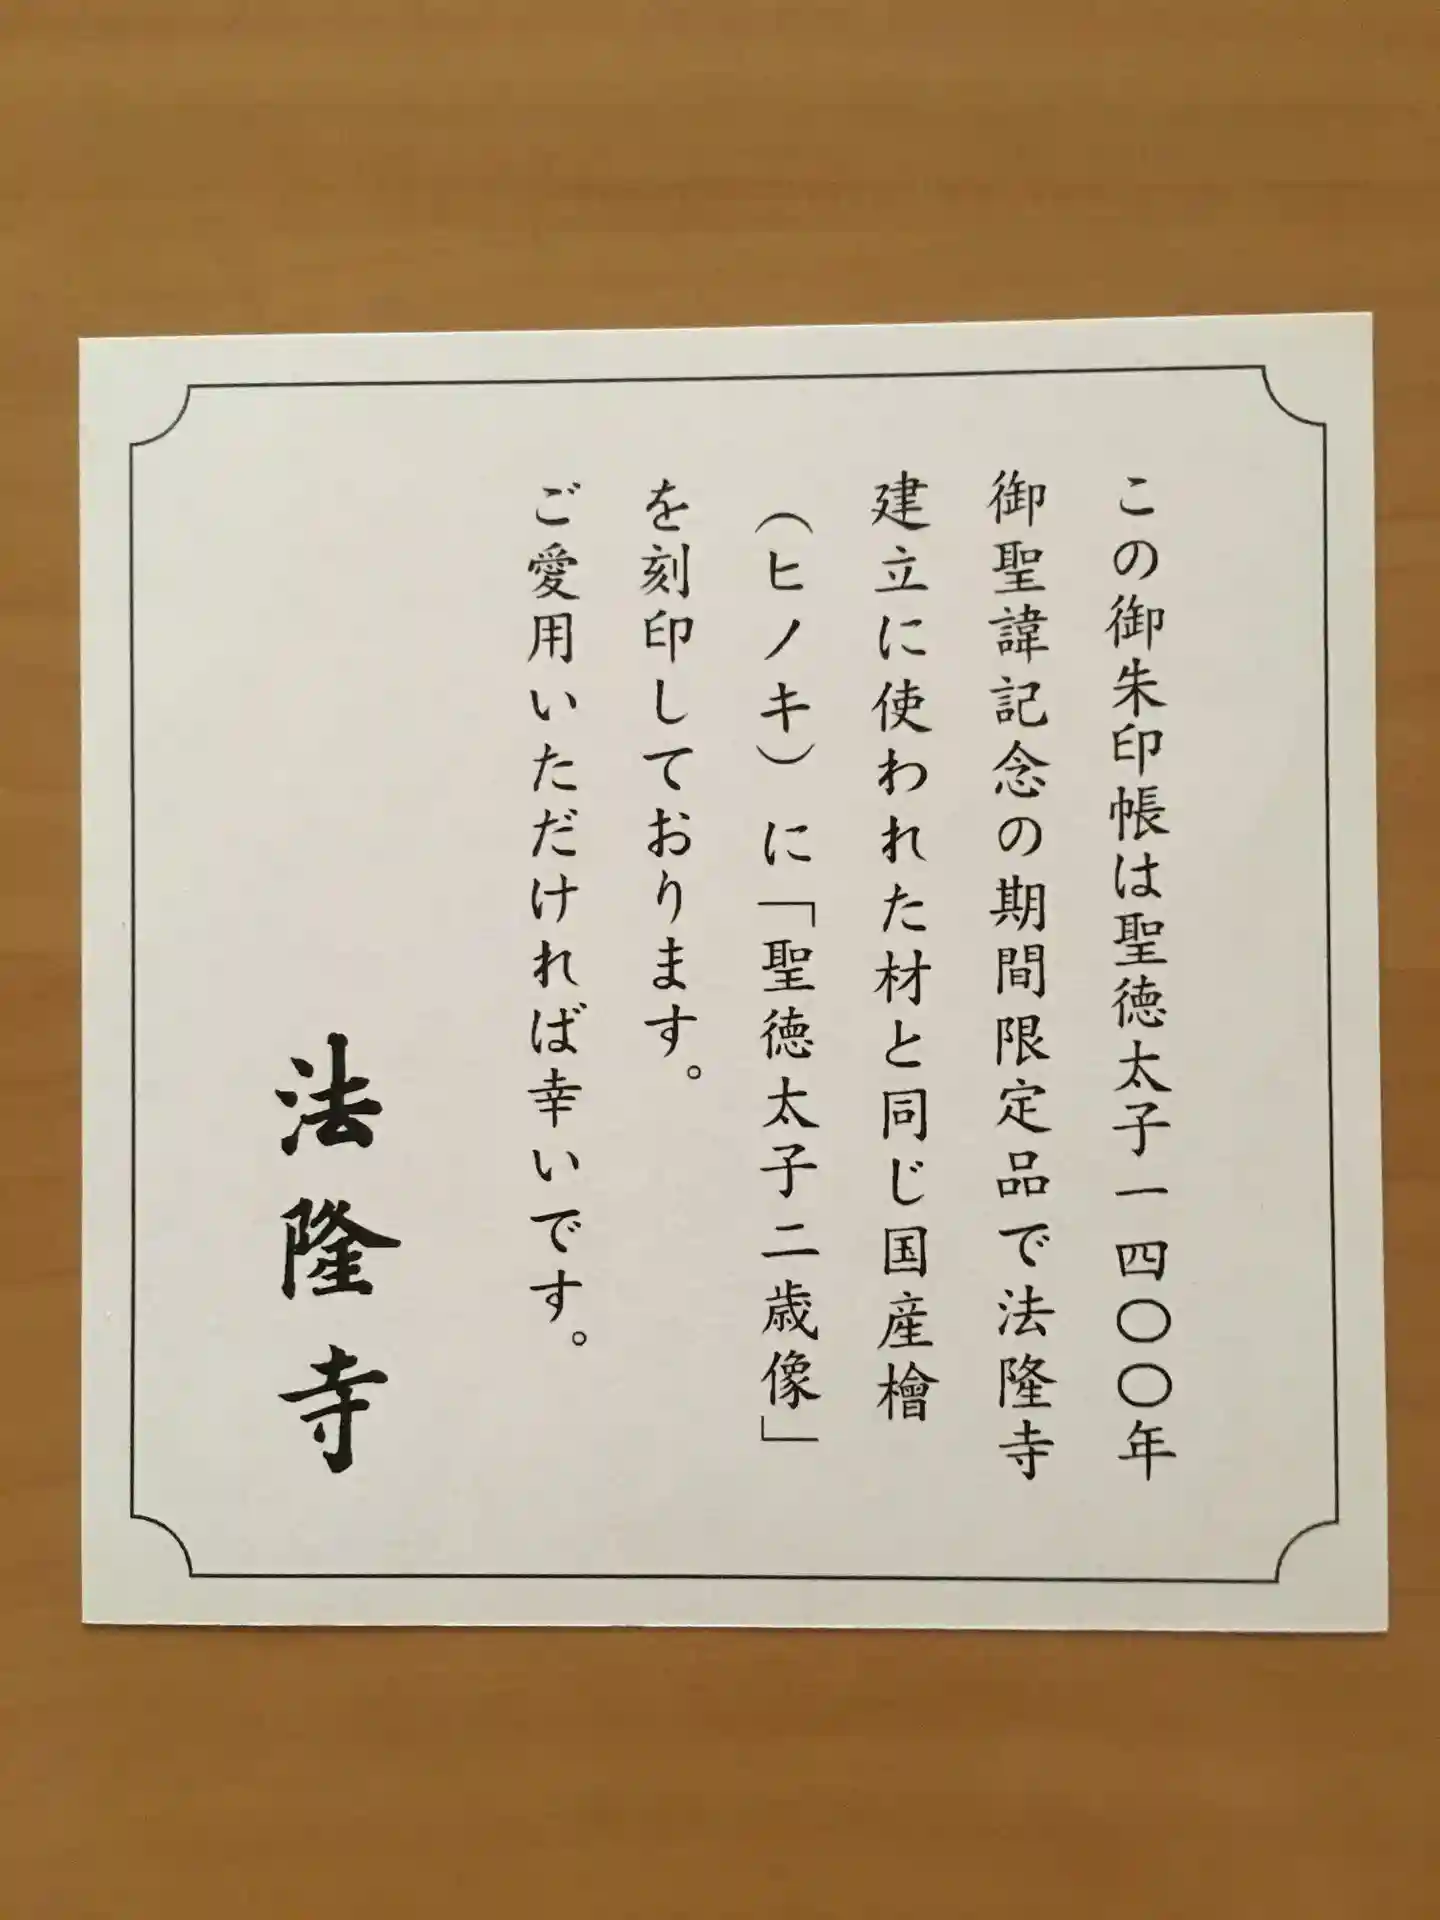 この御朱印帳は聖徳太子一四〇〇年
御聖諱記念の期間限定品で法隆寺
建立に使われた材と同じ国産檜
（ヒノキ）に「聖徳太子二歳像」
を刻印しております。
ご愛用いただければ幸いです。
法隆寺